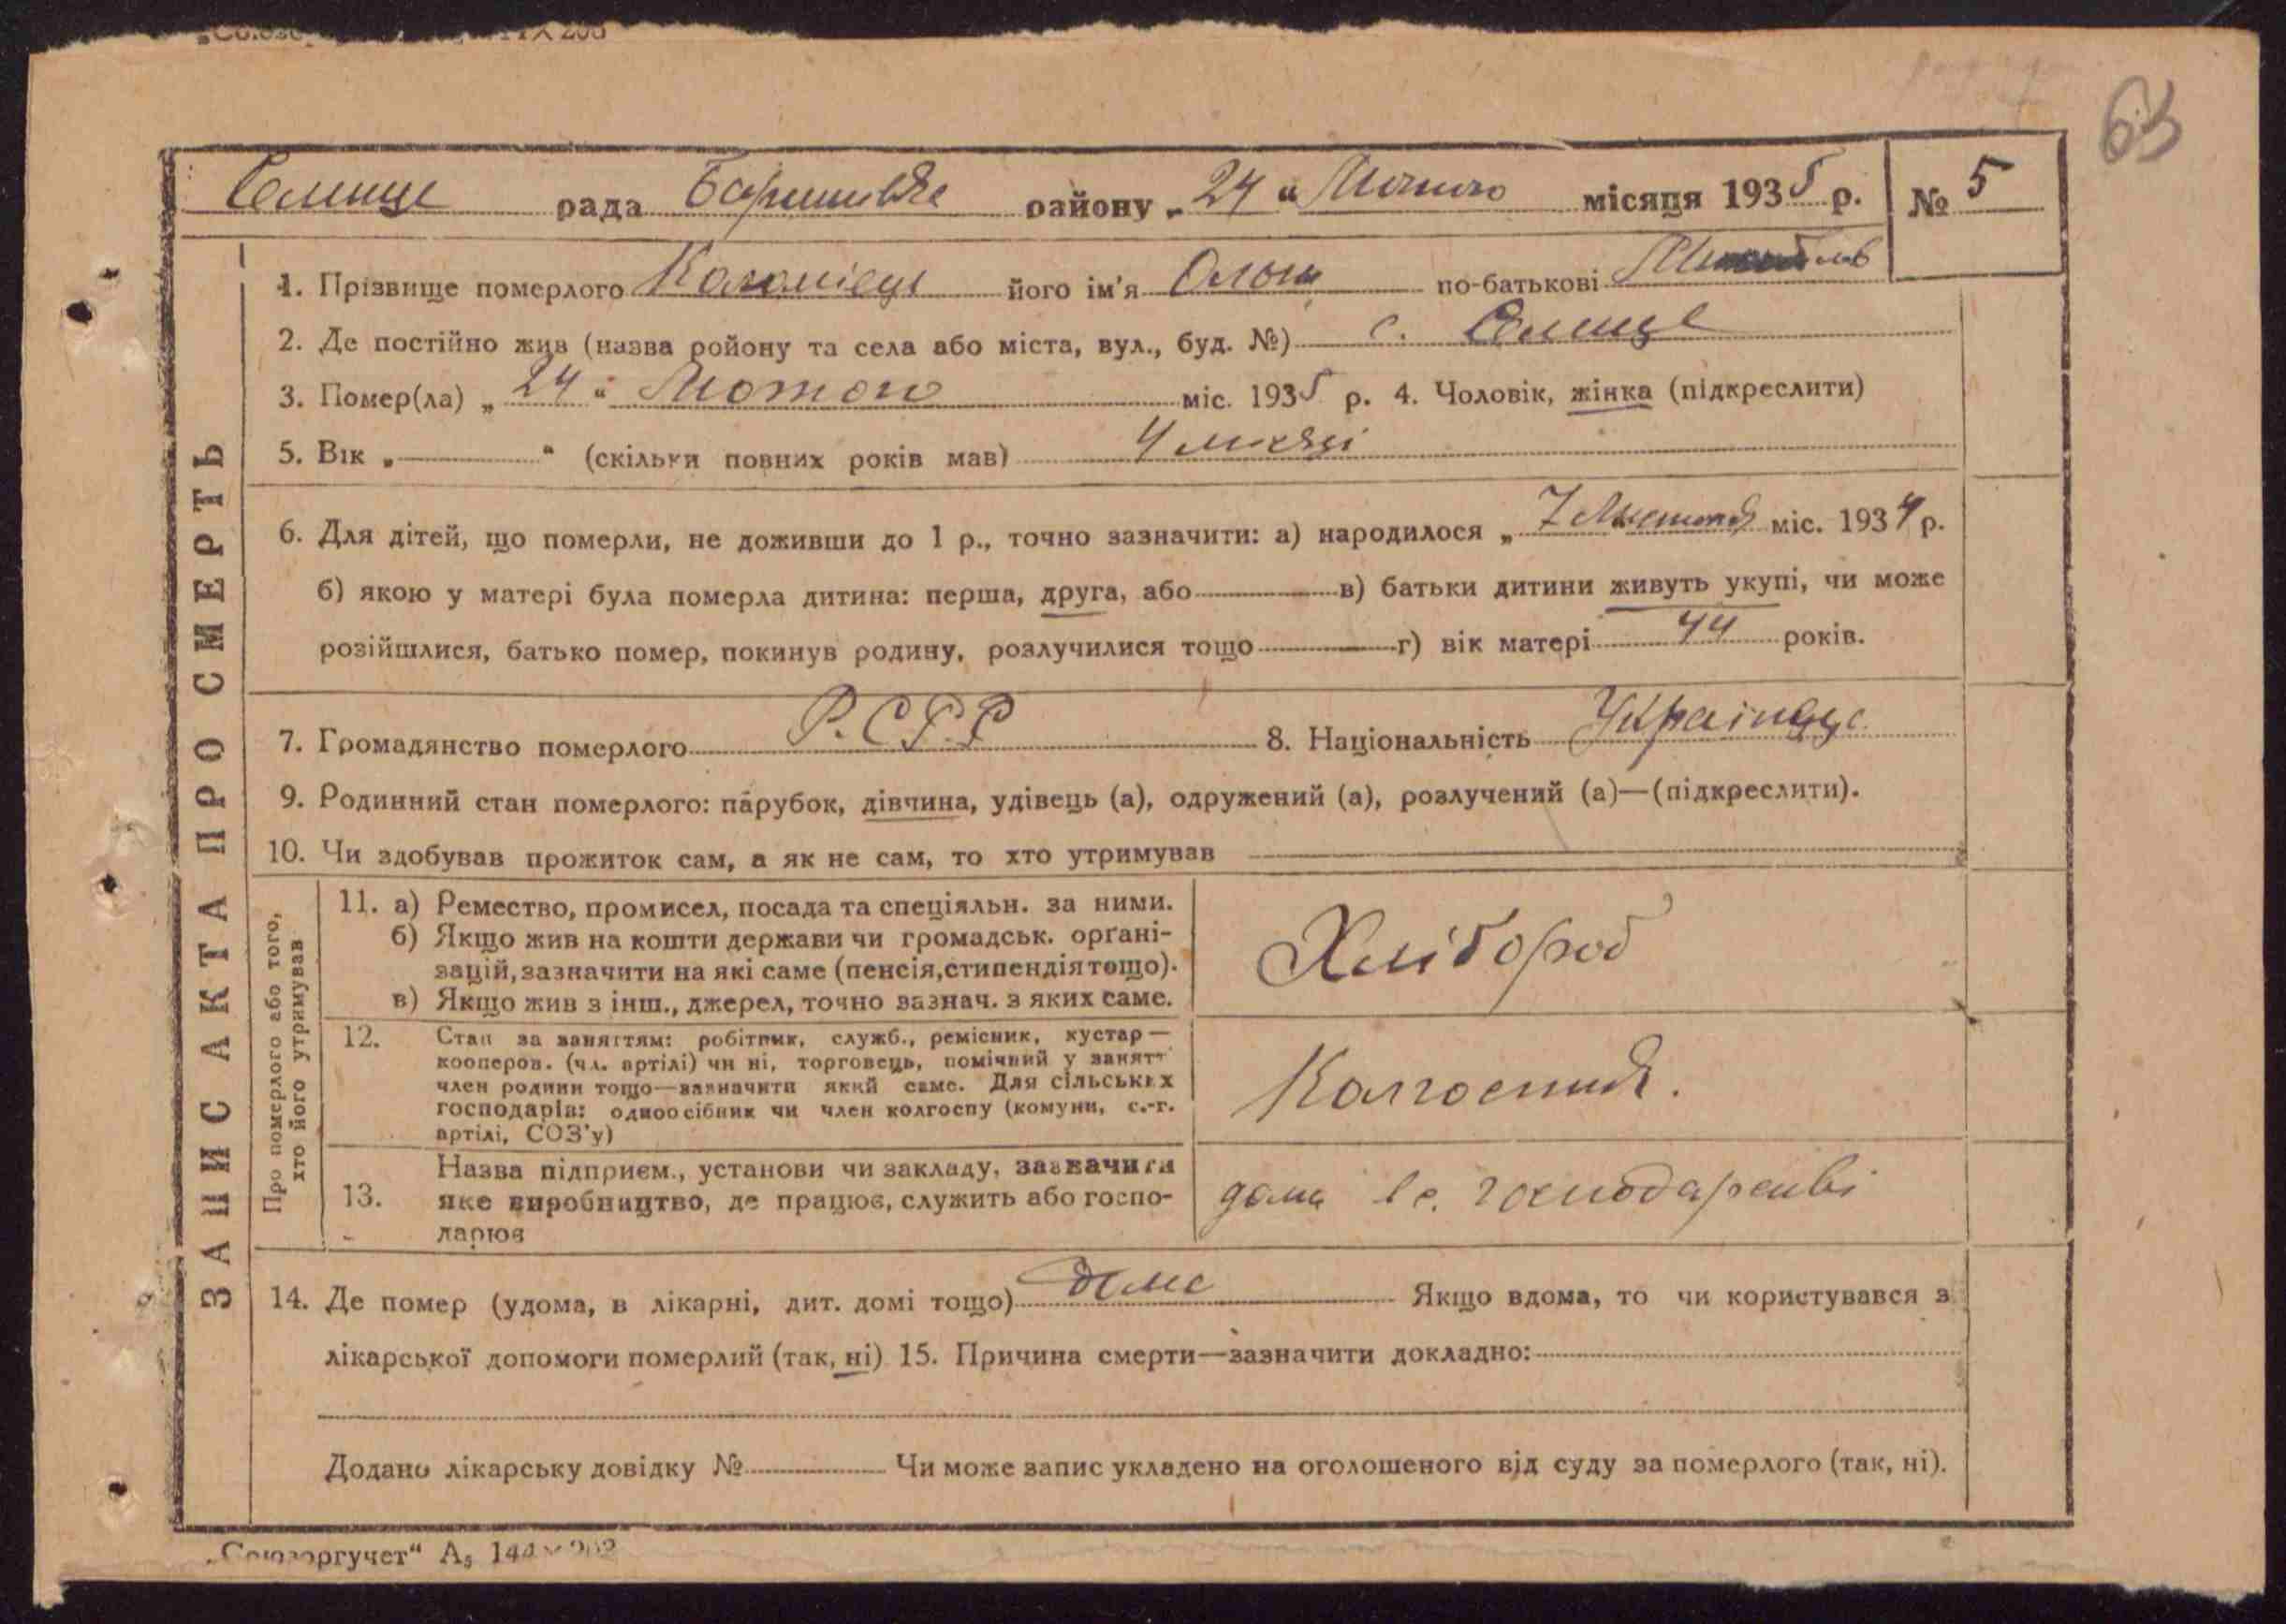 63
Селище рада Баришевське району „24“ Лютого місяця 1935 р. № 5
ЗАПИС АКТА ПРО СМЕРТЬ
1. Прізвище померлого Коломієць його ім'я Ольга по-батькові
2. Де постійно жив (назва ройону та села або міста, вул., буд. №) с. Селище
3. Помер(ла) „24“ Лютого міс. 1935 р. 4. Чоловік, жінка (підкреслити)
5. Вік „ “ (скільки повних років мав) 4 місяці
6. Для дітей, що померли, не доживши до 1 р., точно зазначити: а) народилося „7 Листопад міс. 1934 р.
б) якою у матері була померла дитина: перша, друга, або в) батьки дитини живуть укупі, чи може
розійшлися, батько помер, покинув родину, розлучилися тощо г) вік матері 44 років.
7. Громадянство померлого Р.С.Р.Р 8. Національність Українця
9. Родинний стан померлого: парубок, дівчина, удівець (а), одружений (а), розлучений (а)—(підкреслити).
10. Чи здобував прожиток сам, а як не сам, то хто утримував
Про померлого або того,
хто його утримував
11. а) Ремество, промисел, посада та спеціяльн. за ними.
б) Якщо жив на кошти держави чи громадськ. орґані-
зацій, зазначити на які саме (пенсія, стипендія тощо).
в) Якщо жив з інш., джерел, точно зазнач. з яких саме.
Хлібороб
12. Стан за заняттям: робітник, служб., ремісник, кустар—
кооперов. (чл. артілі) чи ні, торговець, помічний у занятт
член родини тощо—зазначити який саме. Для сільських
господарів: одноосібник чи член колгоспу (комуни, с.-г.
артілі, СОЗ'у)
Колгоспник.
13. Назва підприєм., установи чи закладу, зазначити
яке виробництво, де працює, служить або госпо-
дарює
дома в с. господарстві
14. Де помер (удома, в лікарні, дит. домі тощо) дома Якщо вдома, то чи користувався з
лікарської допомоги померлий (так, ні) 15. Причина смерти—зазначити докладно:
Додано лікарську довідку № Чи може запис укладено на оголошеного від суду за померлого (так, ні).
„Союзоргучет“ А₅ 144